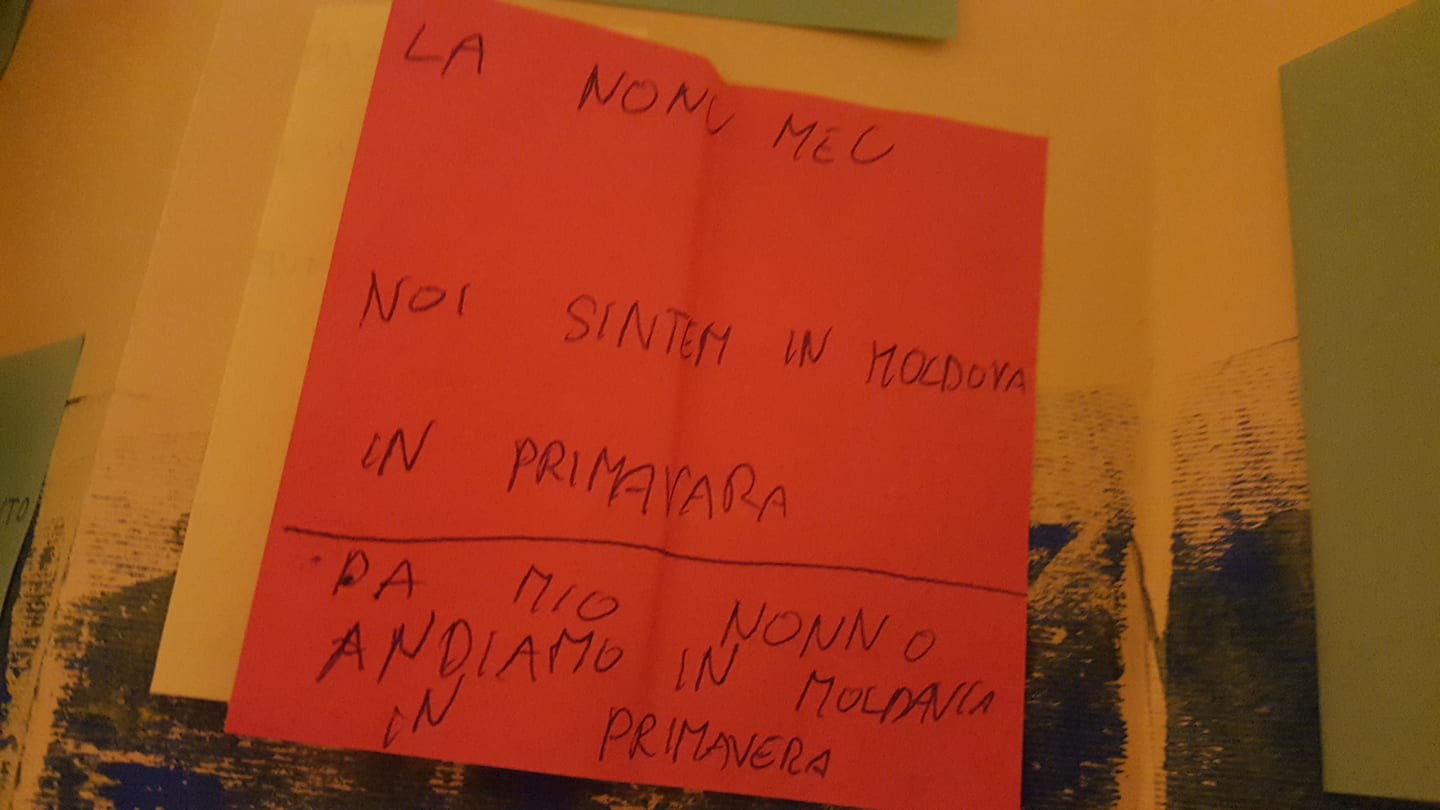 LA NONU MEU
NOI SINTEM IN MOLDOVA
IN PRIMAVARA
DA MIO NONNO
ANDIAMO IN MOLDAVIA
IN PRIMAVERA